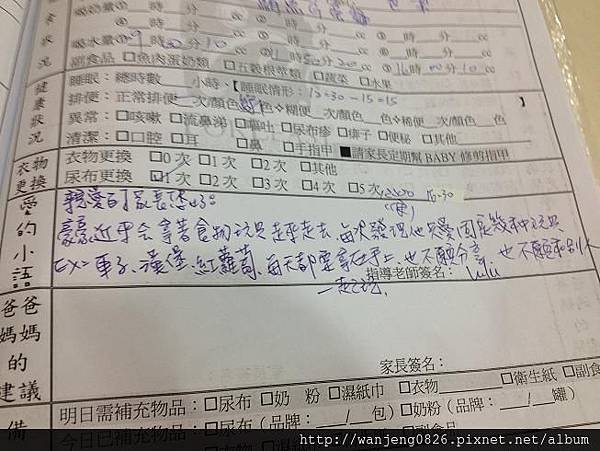 ①__時__分__cc ②__時__分__cc
吸水量①9時00分10cc ②11時50分20cc ③14時00分10cc
副食品 □魚肉蛋奶類 □五穀根莖類 □蔬菜 □水果
睡眠：總時數____小時．【睡眠情形：12:30-15:15
排便：正常排便__次/顏色__色 糊便__次/顏色__色 稀便__次/顏色__色
異常：□咳嗽 □流鼻涕 □嘔吐 □尿布疹 □痱子 □便秘 □其他
清潔：□口腔 □耳 □鼻 □手指甲 ■請家長定期幫BABY修剪指甲
健康狀況
衣物更換
衣物更換 □0次 □1次 □2次 □其他
尿布更換 □1次 □2次 □3次 □4次 □5次
16:30
愛的小語
親愛的家長您好：
近來會拿著食物玩具走來走去，每次發現他只愛固定幾種玩具
EX：車子、漢堡、紅蘿蔔，每天都要拿在手上，也不願分享，也不願和別人
一起玩。
指導老師簽名：Lulu
爸爸媽媽的建議
家長簽名：
備
明日需補充物品：□尿布 □奶粉 □濕紙巾 □衣物____ □衛生紙 □副食
今日已補充物品：□尿布（品牌：____/__包）□奶粉（品牌：____/__罐）
http://wanjeng0826.pixnet.net/album